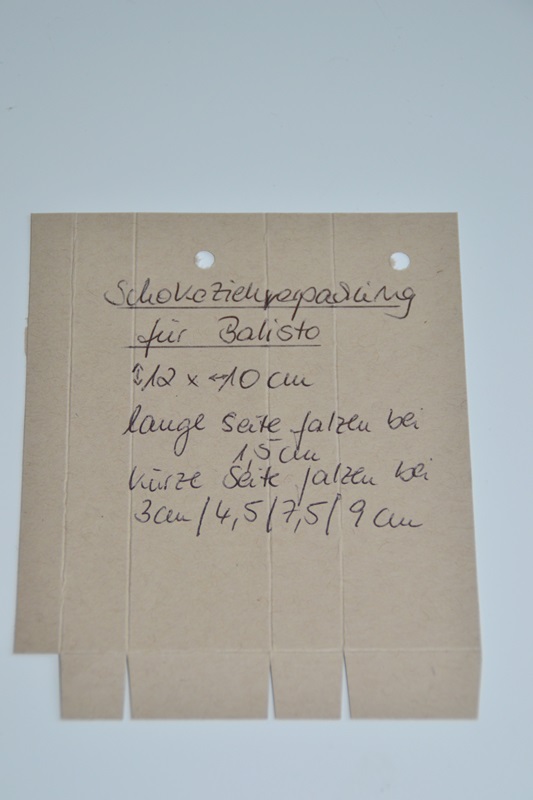 Schokoziehverpackung
für Balisto
↕12 x ↔10 cm
lange Seite falzen bei
1,5 cm
kurze Seite falzen bei
3cm/4,5/7,5/9 cm